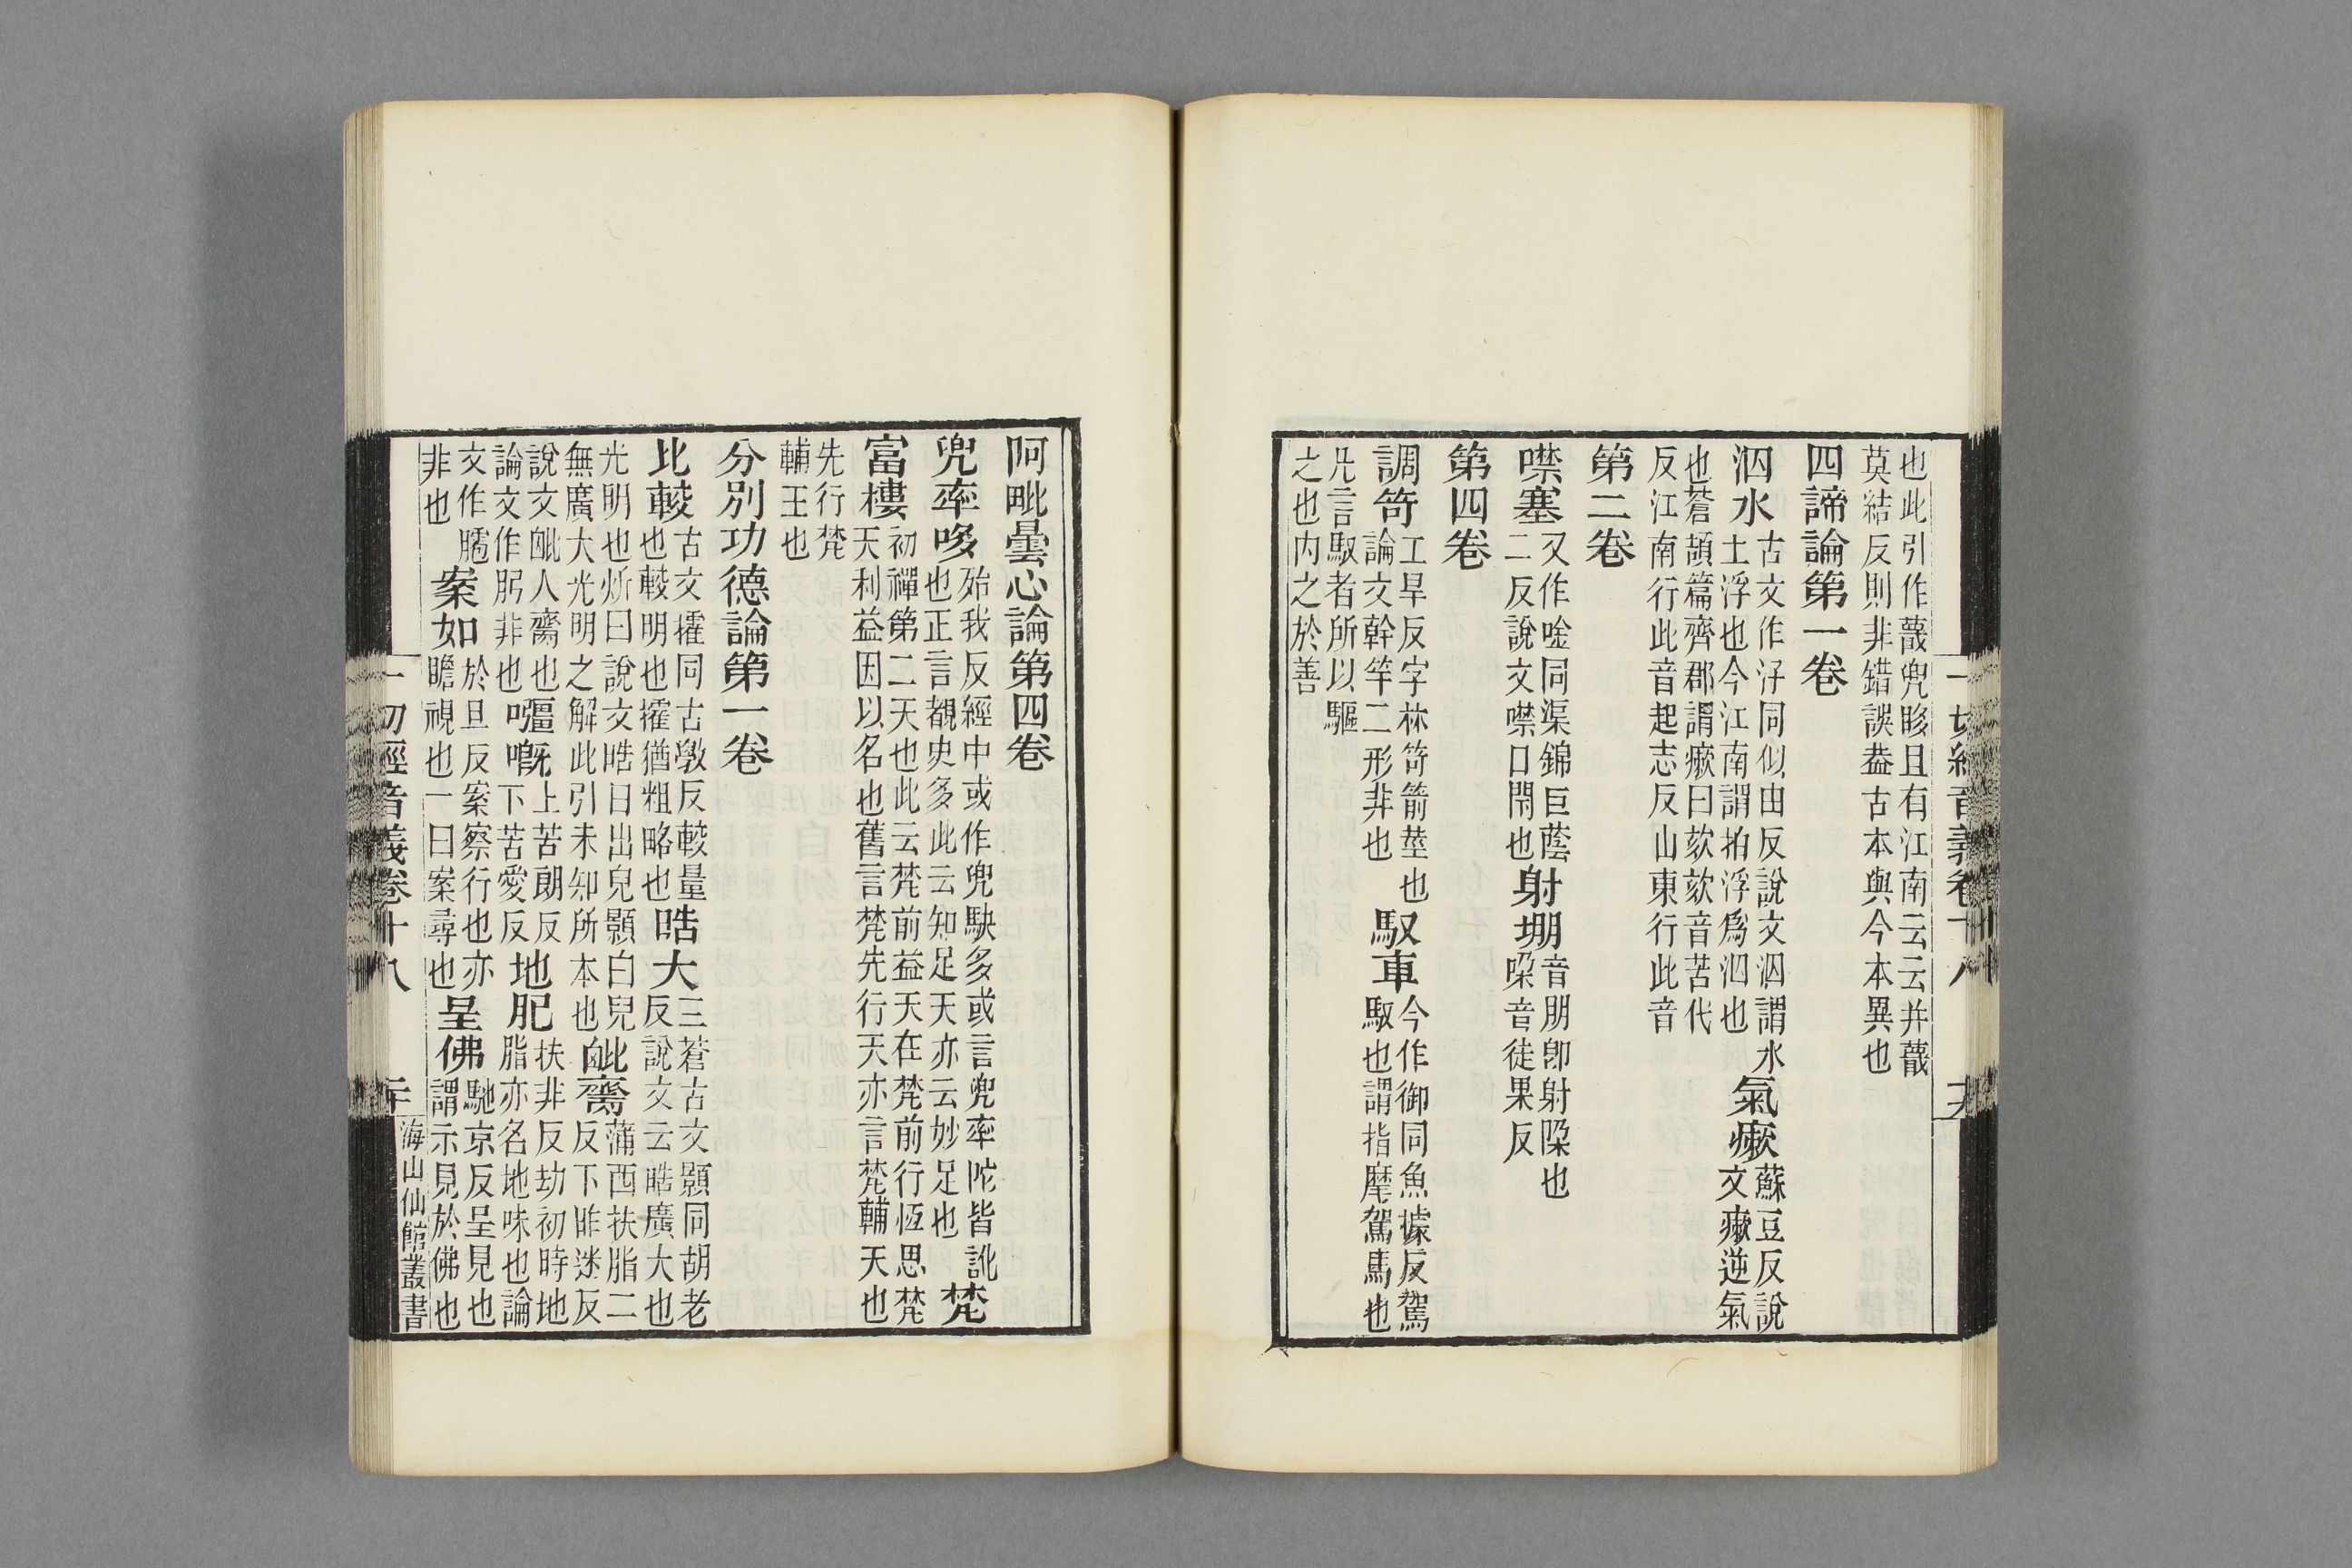 也此引作蔑兜眵且有江南云云并蔑
莫結反則非錯誤葢古本與今本異也
四諦論第一卷
泅水古文作汓同似由反說文泅謂水
土浮也今江南謂拍浮爲泅也氣瘷蘇豆反說
文瘷逆氣
也蒼頡篇齊郡謂瘷曰欬欬音苦代
反江南行此音起志反山東行此音
第二卷
噤塞又作唫同渠錦巨蔭
二反說文噤口閉也射堋音朋卽射垜也
垜音徒果反
第四卷
調笴工旱反字林笴箭莖也
論文幹竿二形非也馭車今作御同魚據反駕
馭也謂指麾駕馬也
凡言馭者所以驅
之也内之於善
阿毗曇心論第四卷
兜率哆殆我反經中或作兜駃多或言兜率陀皆訛
也正言覩史多此云知足天亦云妙足也梵
富樓初禪第二天也此云梵前益天在梵前行恆思梵
天利益因以名也舊言梵先行天亦言梵輔天也
先行梵
輔王也
分別功德論第一卷
比較古文㩁同古斆反較量
也較明也㩁猶粗略也晧大三蒼古文顥同胡老
反說文云晧廣大也
光明也炘曰說文晧日出皃顥白皃
無廣大光明之解此引未知所本也㐁齌蒲西扶脂二
反下昨迷反
說文㐁人齌也𡃗嘅上苦朗反
論文作肶非也下苦愛反地肥扶非反劫初時地
脂亦名地味也論
文作臑
非也案如於旦反案察行也亦
瞻視也一曰案尋也呈佛馳京反呈見也
謂示見於佛也
一切經音義卷十八
二十
海山仙館叢書